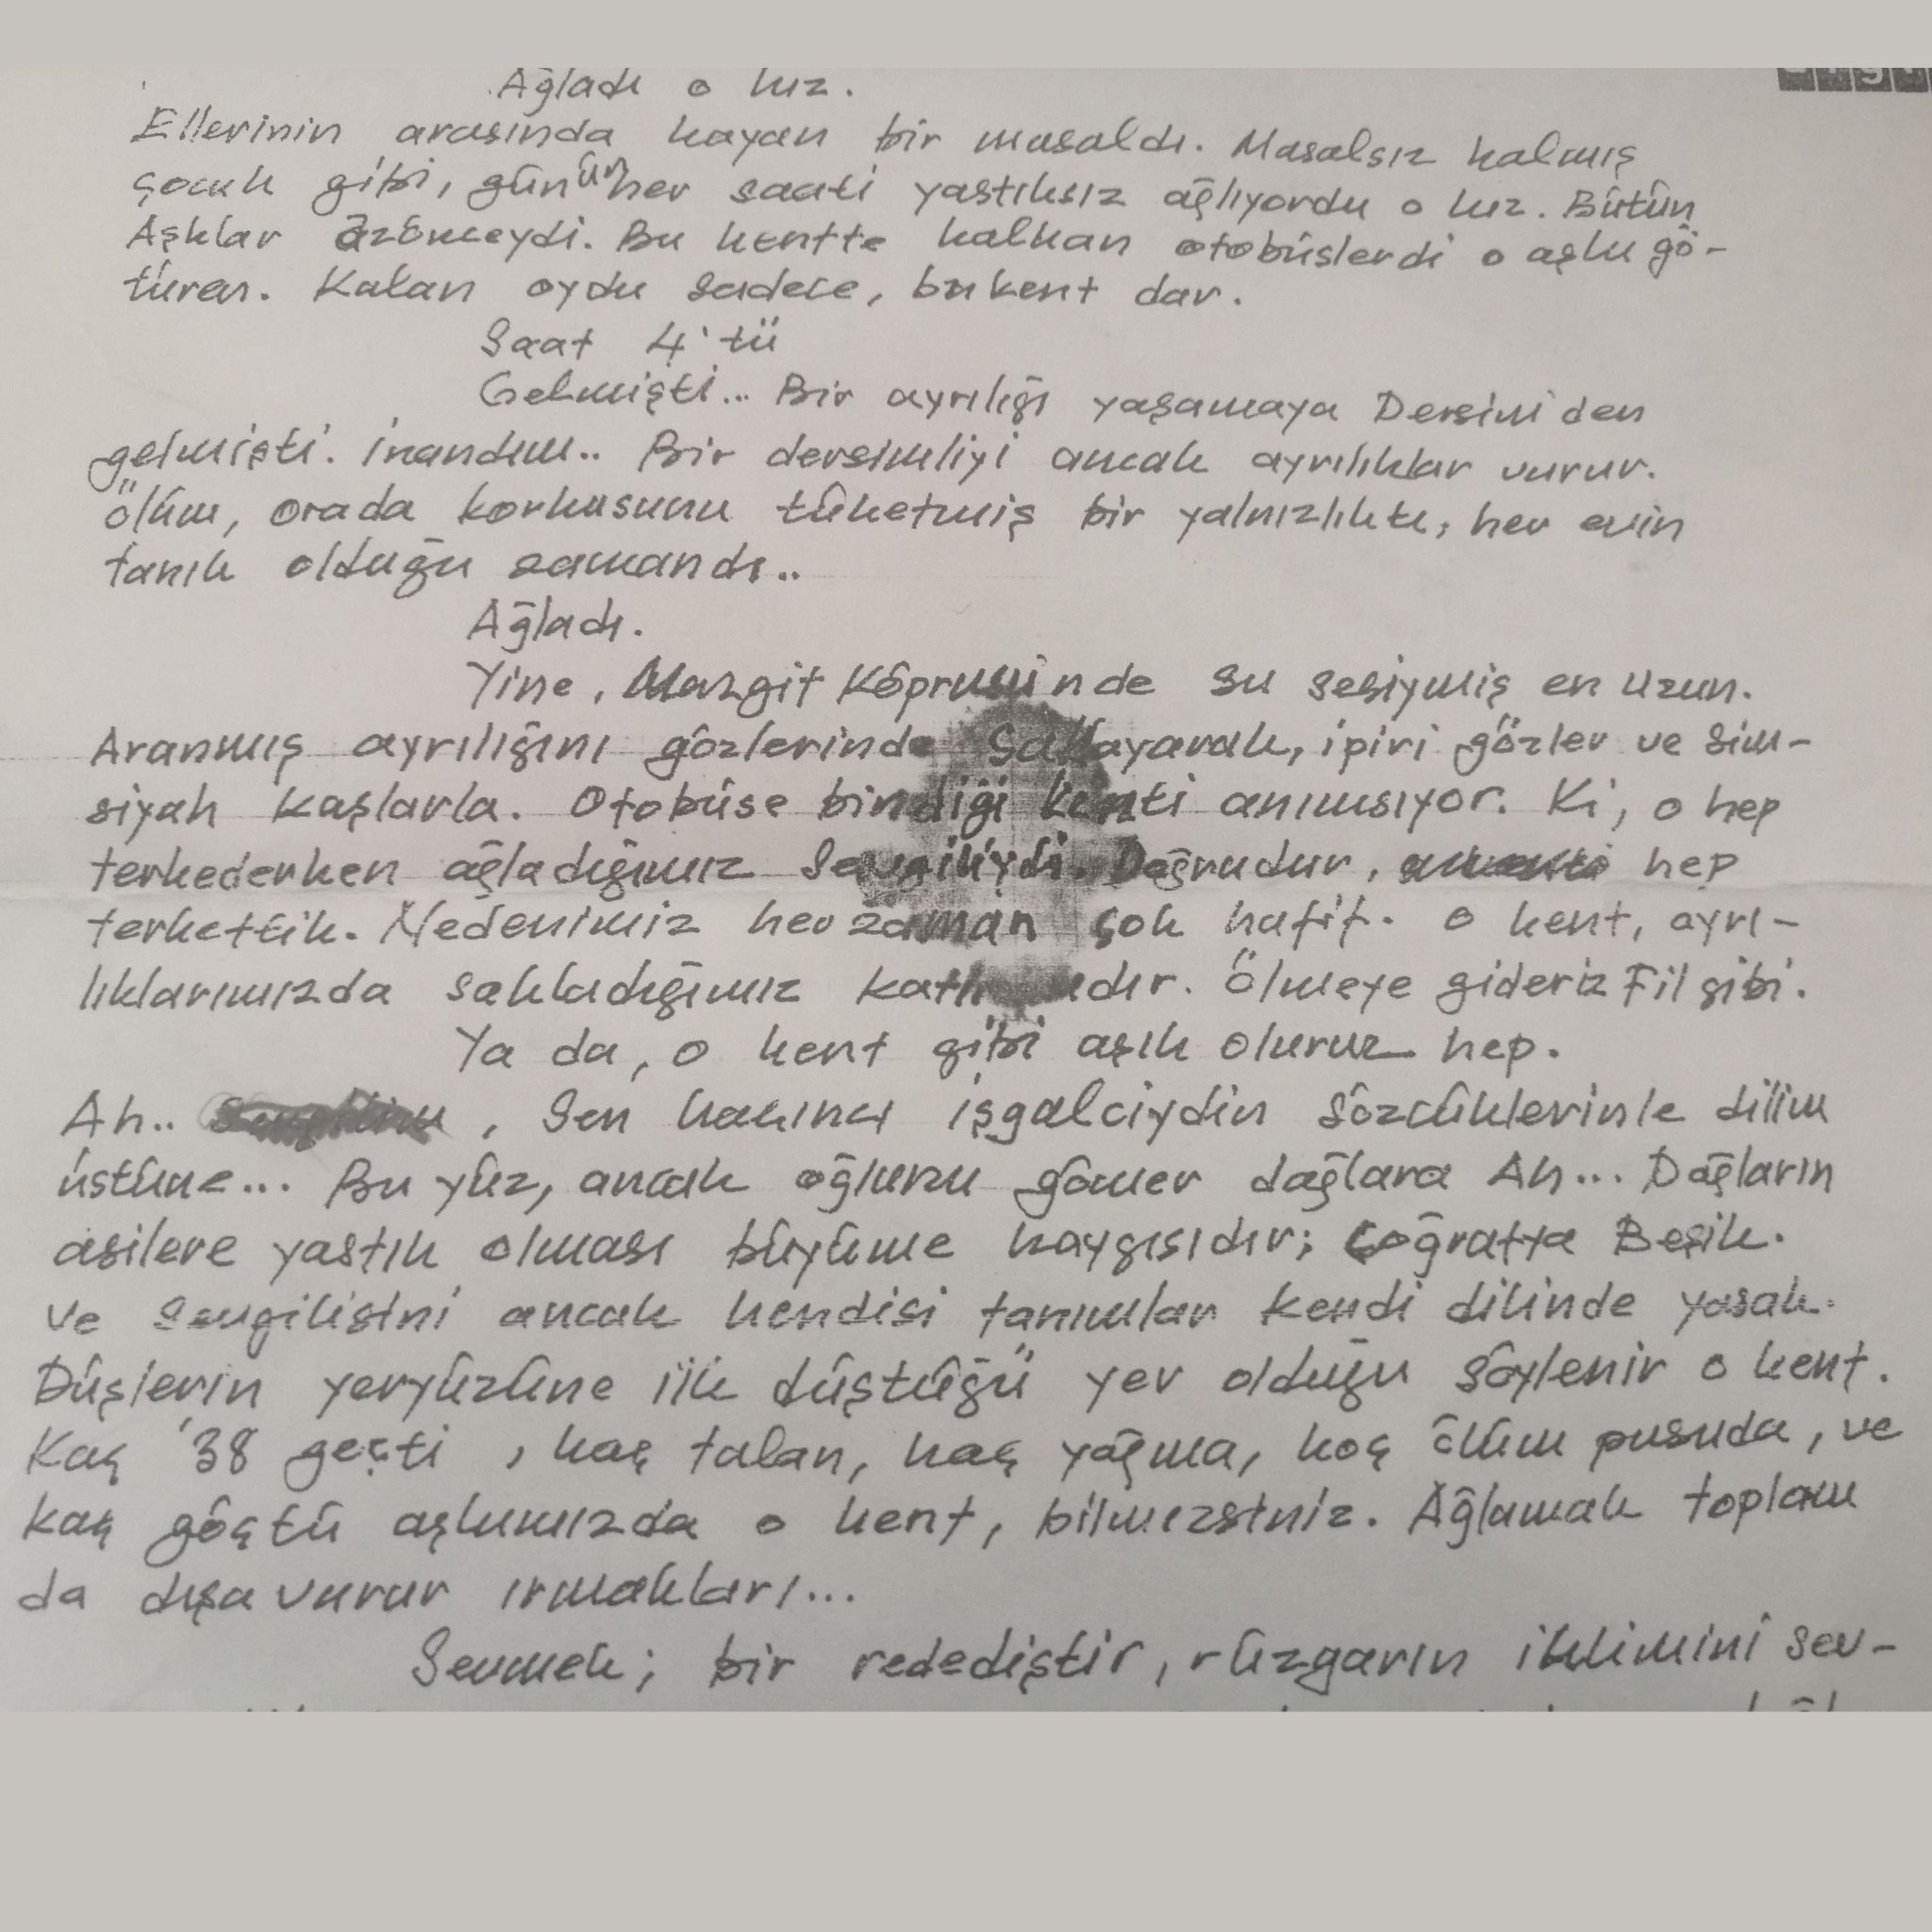 Ağladı o kız.
Ellerinin arasında kayan bir masaldı. Masalsız kalmış
çocuk gibi, günün her saati yastıksız ağlıyordu o kız. Bütün
Aşklar azönceydi. Bu kentte kalkan otobüslerdi o aşkı gö-
türen. Kalan oydu sadece, bu kent dar.
Saat 4'tü
Gelmişti... Bir ayrılığı yaşamaya Dersim'den
gelmişti. inandım.. Bir dersimliyi ancak ayrılıklar vurur.
Ölüm, orada korkusunu tüketmiş bir yalnızlıktı, her evin
tanık olduğu zamandı..
Ağladı.
Yine, Mazgit Köprüsünde su sesiymiş en uzun.
Aranmış ayrılığını gözlerinde saklayarak, ipiri gözler ve sim-
siyah kaşlarla. Otobüse bindiği kenti anımsıyor. Ki, o hep
terkederken ağladığımız sevgiliydi. Doğrudur, hep
terkettik. Nedenimiz her zaman çok hafif. O kent, ayrı-
lıklarımızda sakladığımız Ölmeye gideriz Fil gibi.
Ya da, o kent gibi aşık oluruz hep.
Ah.. , Sen kaçıncı işgalciydin sözcüklerinle dilim
üstüne... Bu yüz, ancak oğlunu gömer dağlara Ah... Dağların
asilere yastık olması büyüme kaygısıdır; Coğrafya Beşik.
Ve Sevgilisini ancak kendisi tanımlar kendi dilinde yasak.
Düşlerin yeryüzüne ilk düştüğü yer olduğu söylenir o kent.
Kaç '38 geçti, kaç talan, kaç yağma, kaç ölüm pusuda, ve
kaç göçtü aşkımızda o kent, bilmezsiniz. Ağlamak toplam
da dışa vurur ırmakları...
Sevmek; bir rededİştir, rüzgarın iklimini sev-